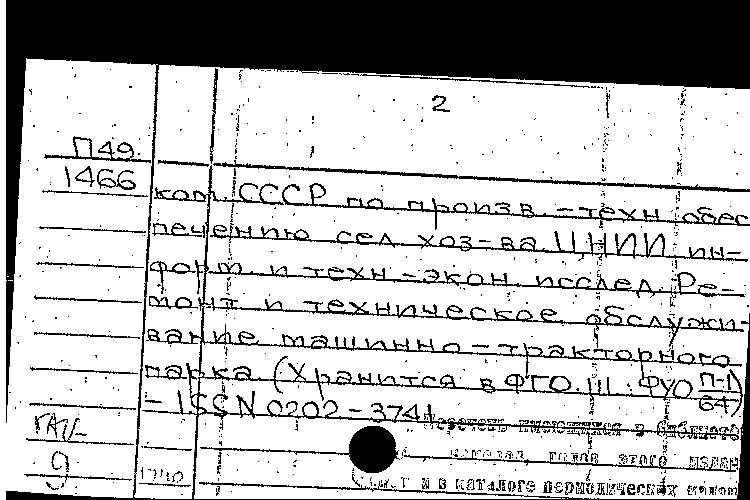 2
П49
1466
ком. СССР по произв.-техн обес
печению сел хоз-ва. ЦНИИ ин-
форм. и техн.-экон. исслед. Ре-
монт и техническое обслужи-
вание машинно-тракторного
парка (Хранится в ФГО. III. ФУО П-1)
64)
- ISSN 0202-3741
Перечень имеющихся в библиоте
номеров, годов этого издан
и в каталоге периодических
9